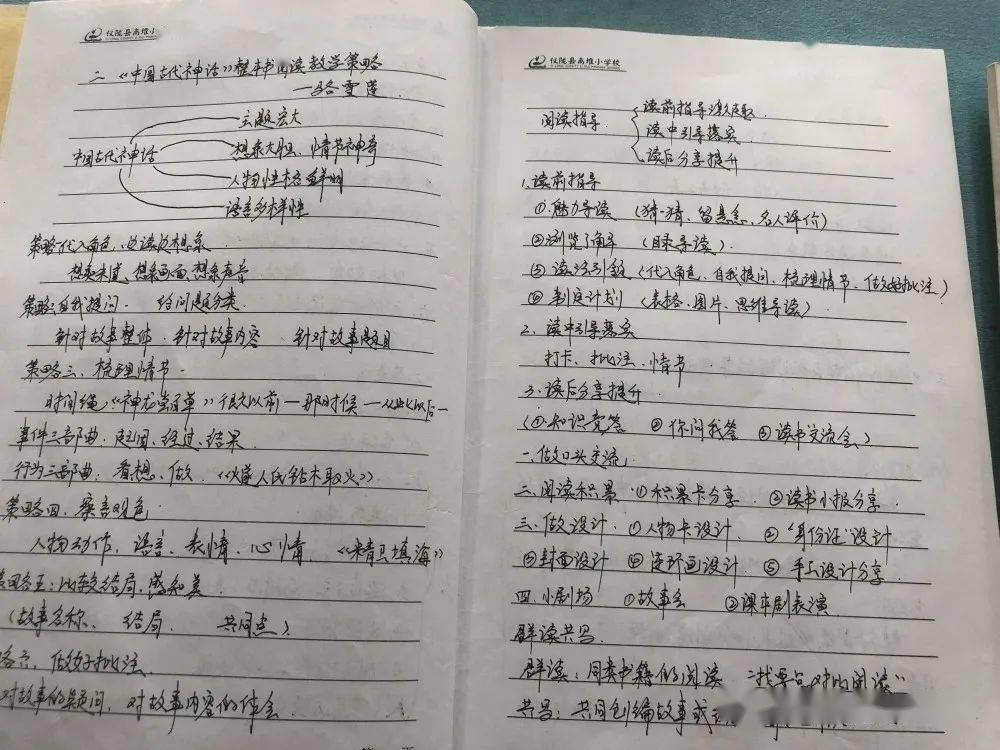 仪陇县高堆小
二、《中国古代神话》整本书阅读教学策略
——骆雪莲
主题宏大
中国古代神话
想象大胆、情节神奇
人物性格鲜明
语言多样性
策略一代入角色,边读边想象
想象味道、想象画面、想象声音
策略二自我提问 给问题分类
针对故事整体 针对故事内容 针对故事题目
策略三、梳理情节
时间绳《神农尝百草》很久以前—那时候—从此以后—
事件三部曲:起因、经过、结果
行为三部曲:看、想、做 《燧人氏钻木取火》
策略四、察言观色
人物动作、语言、表情、心情 《精卫填海》
策略五:比较结局,感知美
(故事名称、结局、共同点)
略六、做好批注
对故事的疑问,对故事内容的体会
仪陇县高堆小学校
阅读指导
读前指导激趣
读中引导落实
读后分享提升
1.读前指导
①魅力导读 (猜一猜、留悬念、名人评价)
②浏览了解 (目录导读)
③读法引领 (代入角色、自我提问、梳理情节、做好批注)
④制定计划 (表格、图片、思维导读)
2.读中引导落实
打卡、批注、情节
3.读后分享提升
(①知识竞答 ②你问我答 ③读书交流会)
一.做口头交流
二.阅读积累 ①积累卡分享 ②读书小报分享
三.做设计 ①人物卡设计 ②“身份证”设计
③封面设计 ④连环画设计 ⑤手工设计分享
四.小剧场 ①故事会 ②课本剧表演
群读共写
群读:同类书籍的阅读 “找异点,对比阅读”
共写:共同创编故事或